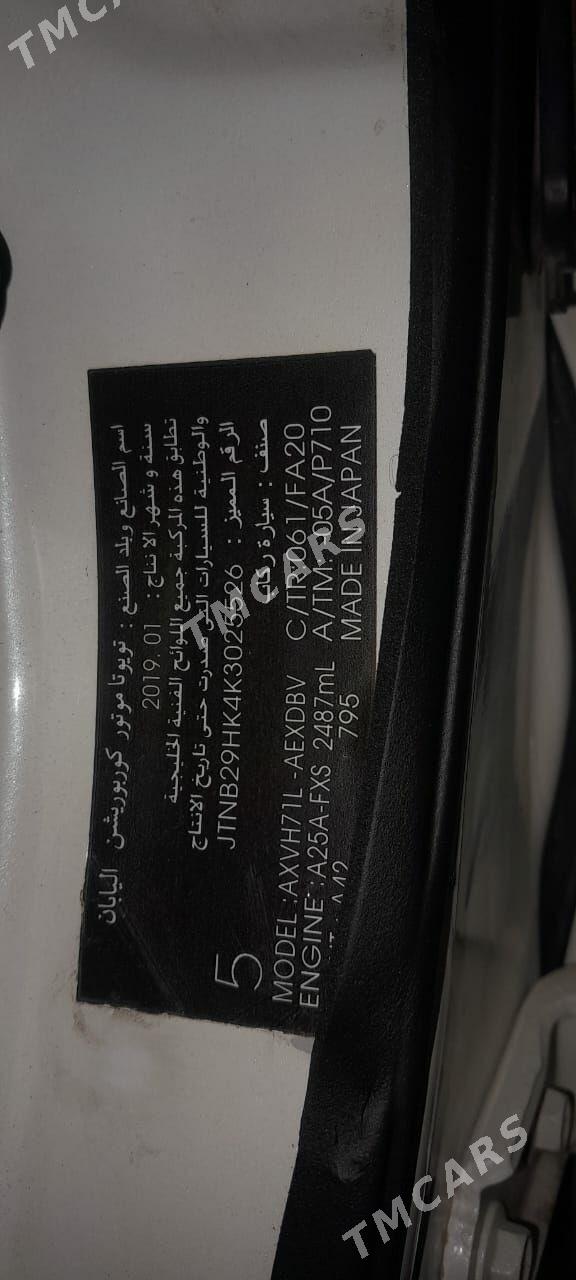 TMCARS
اسم الصانع وبلد الصنع : تويوتا موتور كوربوريشن اليابان
سنة وشهر الانتاج : 2019.01
تطابق هذه المركبة جميع اللوائح الفنية الخليجية
والوطنية للسيارات التى صدرت حتى تاريخ الانتاج
الرقم المميز : JTNB29HK4K30
صنف : سيارة ركاب
5
MODEL :AXVH71L-AEXDBV C/TR /FA20
ENGINE :A25A-FXS 2487mL A/TM: 05A/P710
A42 795 MADE IN JAPAN
TMCARS
TMCARS